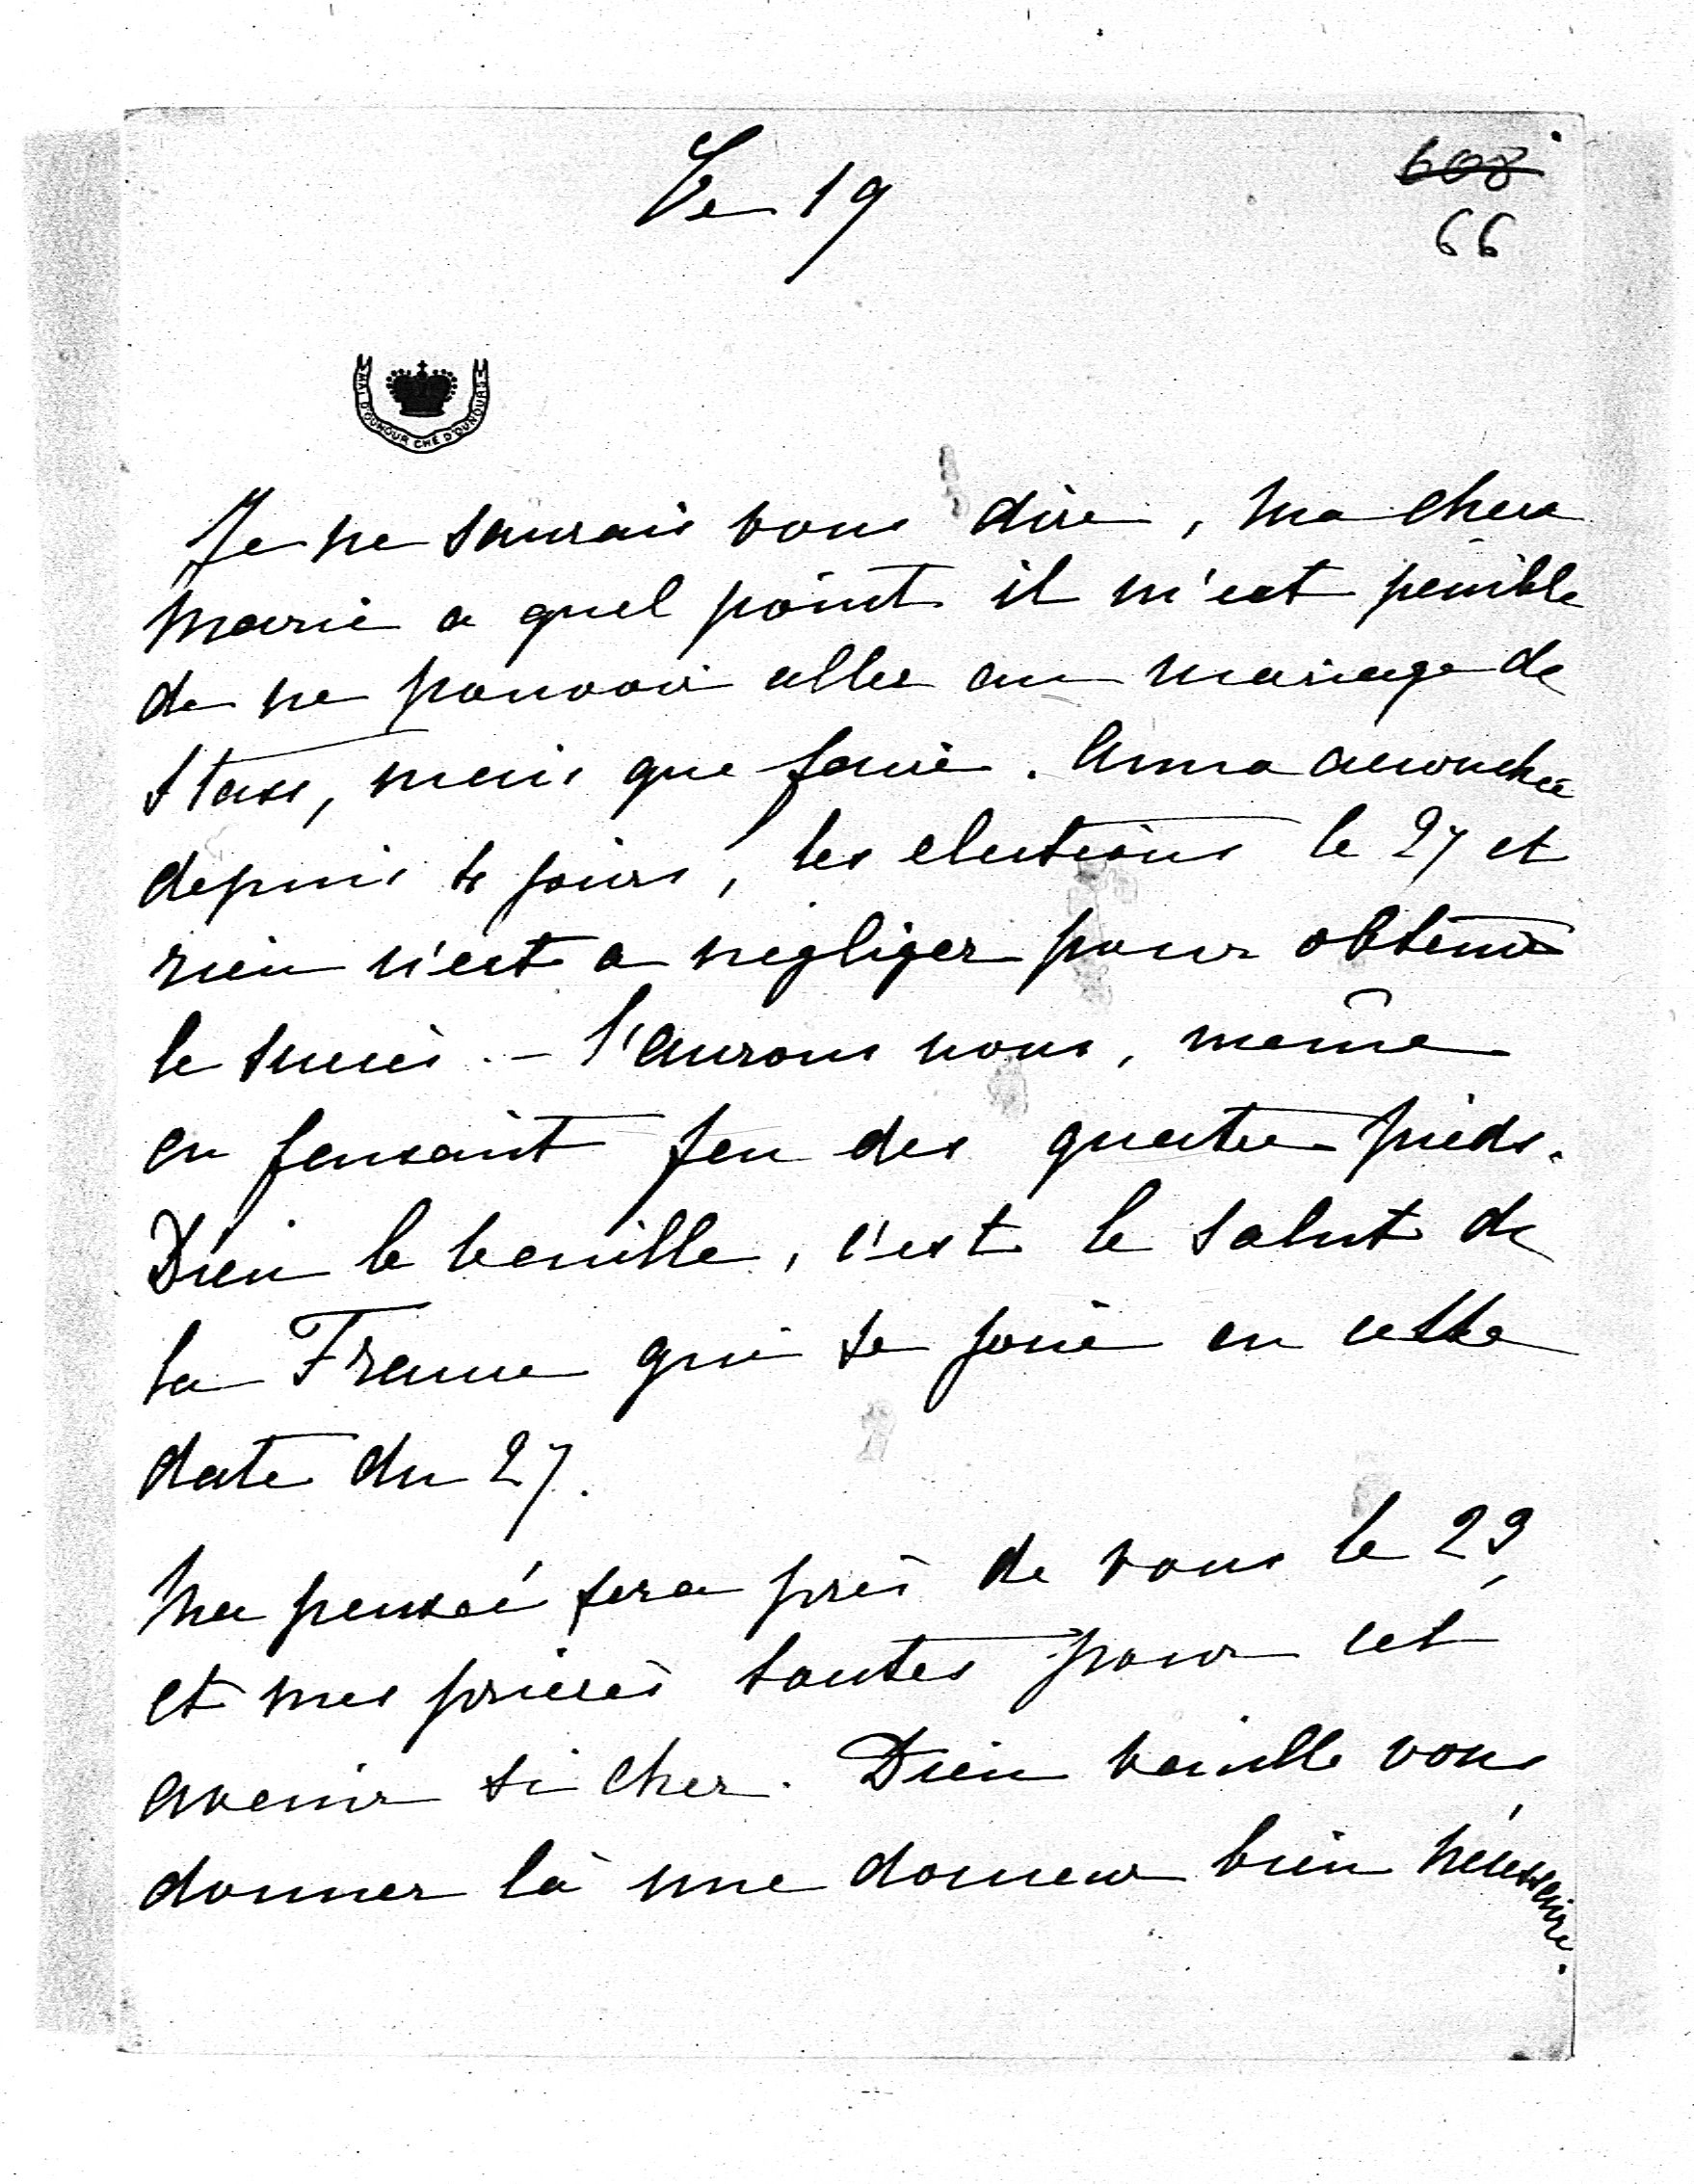 Le 19
608
66
MAI D'OUNOUR CHE D'OUNOURS
Je ne saurais vous dire, ma chere
Marie a quel point il m'est penible
de ne pouvoir aller au mariage de
Stass, mais que faire. Anna accouchée
depuis 4 jours, les elections le 27 et
rien n'est a negliger pour obtenir
le succès. - l'aurons nous, même
en faisant feu des quatre pieds.
Dieu le veuille, c'est le salut de
la France qui se joue en cette
date du 27.
Ma pensée sera près de vous le 29
et mes prières toutes pour cet
avenir si cher. Dieu veuille vous
donner là une douceur bien nécessaire.